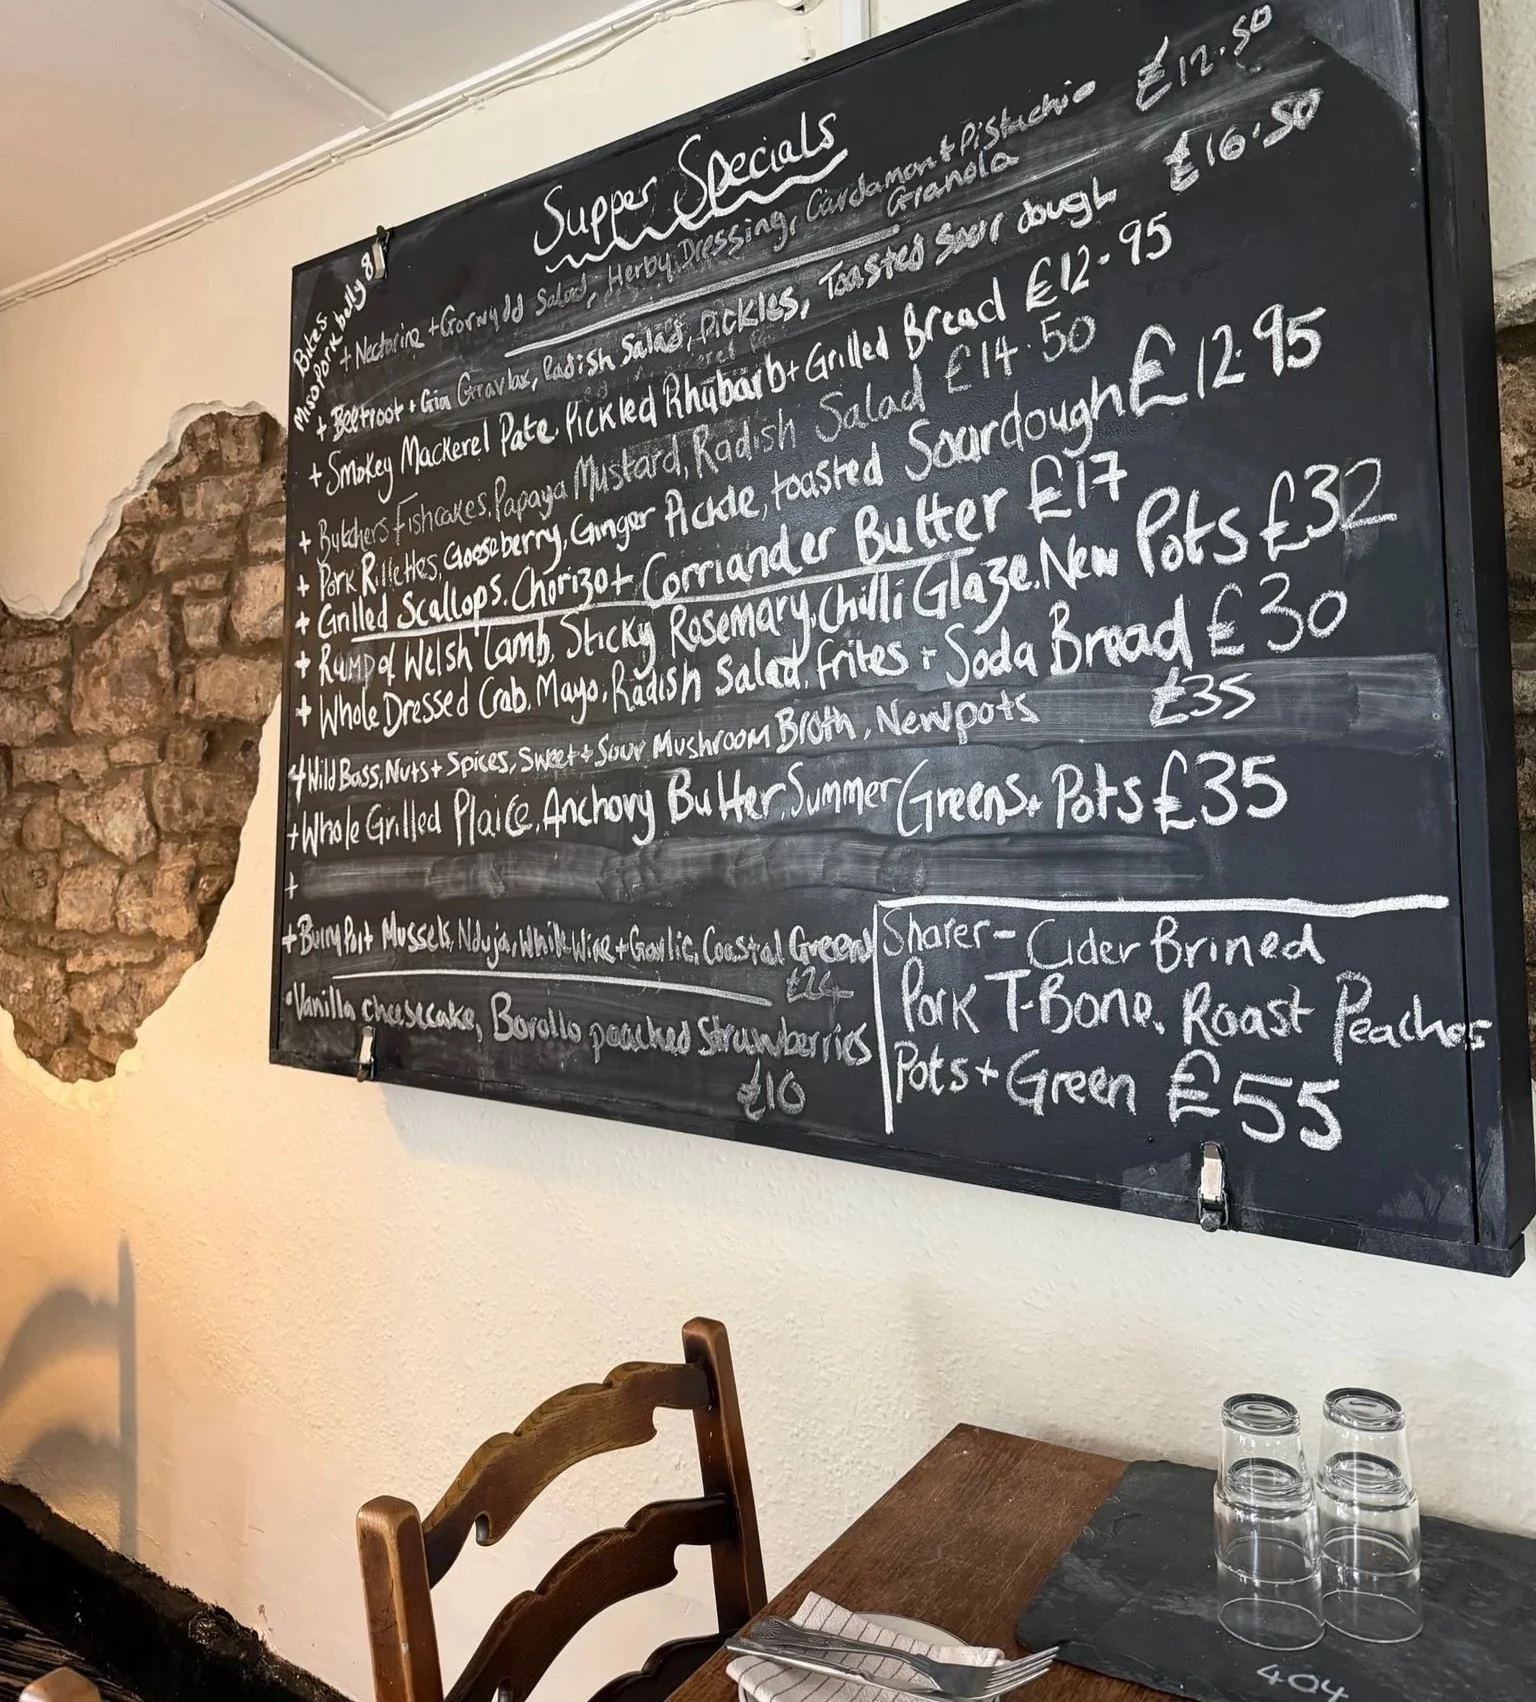 Supper Specials
Bites
Miso Pork belly 8
+ Nectarine + Gorwydd Salad, Herby Dressing, Cardamon + Pistachio £12.50
Granola
+ Beetroot + Gin Gravlax, Radish Salad, Pickles, Toasted Sour dough £16.50
+ Smokey Mackerel Pate, Pickled Rhubarb + Grilled Bread £12.95
+ Butchers Fishcakes, Papaya Mustard, Radish Salad £14.50
+ Pork Rillettes, Gooseberry, Ginger Pickle, toasted Sourdough £12.95
+ Grilled Scallops, Chorizo + Corriander Butter £17
+ Rump of Welsh Lamb, Sticky Rosemary, Chilli Glaze, New Pots £32
+ Whole Dressed Crab, Mayo, Radish Salad, Frites + Soda Bread £30
+ Wild Bass, Nuts + Spices, Sweet + Sour Mushroom Broth, New pots £35
+ Whole Grilled Plaice, Anchovy Butter, Summer Greens, Pots £35
+
+ Burry Port Mussels, Nduja, White Wine + Garlic, Coastal Greens
£24
• Vanilla cheesecake, Borollo poached Strawberries
£10
Sharer - Cider Brined
Pork T-Bone, Roast Peaches
Pots + Green £55
404